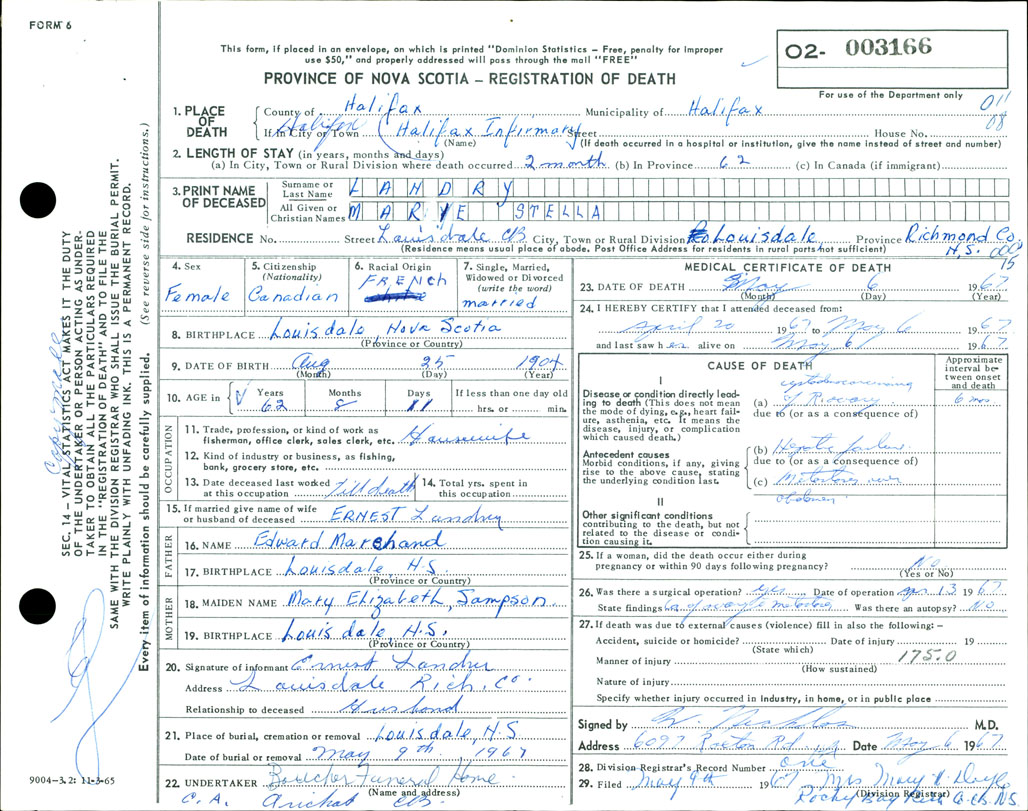 FORM 6
This form, if placed in an envelope, on which is printed "Dominion Statistics – Free, penalty for improper
use $50," and properly addressed will pass through the mail "FREE"
PROVINCE OF NOVA SCOTIA – REGISTRATION OF DEATH
02- 003166
For use of the Department only
011
08
1. PLACE OF DEATH
County of Halifax Municipality of Halifax
If in City or Town Halifax (Halifax Infirmary Street House No.
(Name) (If death occurred in a hospital or institution, give the name instead of street and number)
2. LENGTH OF STAY (in years, months and days)
(a) In City, Town or Rural Division where death occurred 2 month (b) In Province 62 (c) In Canada (if immigrant)
3. PRINT NAME OF DECEASED
Surname or Last Name LANDRY
All Given or Christian Names MARIE STELLA
RESIDENCE No. Street Louisdale CB City, Town or Rural Division Louisdale Province Richmond Co. N.S.
(Residence means usual place of abode. Post Office Address for residents in rural parts not sufficient)
15
4. Sex Female
5. Citizenship (Nationality) Canadian
6. Racial Origin FRENCH
7. Single, Married, Widowed or Divorced (write the word) married
8. BIRTHPLACE Louisdale, Nova Scotia
(Province or County)
9. DATE OF BIRTH Aug 25 1904
(Month) (Day) (Year)
10. AGE in Years 62 Months 8 Days 11 If less than one day old hrs. or min.
OCCUPATION
11. Trade, profession, or kind of work as fisherman, office clerk, sales clerk, etc. Housewife
12. Kind of industry or business, as fishing, bank, grocery store, etc.
13. Date deceased last worked at this occupation Till death
14. Total yrs. spent in this occupation
15. If married give name of wife or husband of deceased ERNEST Landry
FATHER
16. NAME Edward Marchand
17. BIRTHPLACE Louisdale, N.S.
(Province or Country)
MOTHER
18. MAIDEN NAME Mary Elizabeth, Sampson
19. BIRTHPLACE Louisdale N.S.
(Province or Country)
20. Signature of informant Ernest Landry
Address Louisdale Rich. Co.
Relationship to deceased Husband
21. Place of burial, cremation or removal Louisdale, N.S.
Date of burial or removal May 9th 1967
22. UNDERTAKER Boucher Funeral Home
(Name and address)
C. A. Arichat CB
MEDICAL CERTIFICATE OF DEATH
23. DATE OF DEATH May 6 1967
(Month) (Day) (Year)
24. I HEREBY CERTIFY that I attended deceased from:
April 20 1967 to May 6 1967
and last saw her alive on May 6 1967
CAUSE OF DEATH
Approximate interval between onset and death
I
Disease or condition directly leading to death (This does not mean the mode of dying, e.g., heart failure, asthenia, etc. It means the disease, injury, or complication which caused death.)
(a) 6 mos.
due to (or as a consequence of)
Antecedent causes
Morbid conditions, if any, giving rise to the above cause, stating the underlying condition last.
(b) Hepatic failure
due to (or as a consequence of)
(c)
II
Other significant conditions contributing to the death, but not related to the disease or condition causing it.
25. If a woman, did the death occur either during pregnancy or within 90 days following pregnancy? No
(Yes or No)
26. Was there a surgical operation? yes Date of operation 13 1967
State findings Was there an autopsy? NO
27. If death was due to external causes (violence) fill in also the following: –
Accident, suicide or homicide? Date of injury 19
(State which)
Manner of injury 175.0
(How sustained)
Nature of injury
Specify whether injury occurred in industry, in home, or in public place
Signed by M.D.
Address 6097 Date May 6 1967
28. Division Registrar's Record Number one
29. Filed May 9th 1967 Mrs Mary
(Division Registrar)
SEC. 14 – VITAL STATISTICS ACT MAKES IT THE DUTY
OF THE UNDERTAKER OR PERSON ACTING AS UNDER-
TAKER TO OBTAIN ALL THE PARTICULARS REQUIRED
IN THE "REGISTRATION OF DEATH" AND TO FILE THE
SAME WITH THE DIVISION REGISTRAR WHO SHALL ISSUE THE BURIAL PERMIT.
WRITE PLAINLY WITH UNFADING INK. THIS IS A PERMANENT RECORD.
Every item of information should be carefully supplied. (See reverse side for instructions.)
9004-3.2: 11-3-65